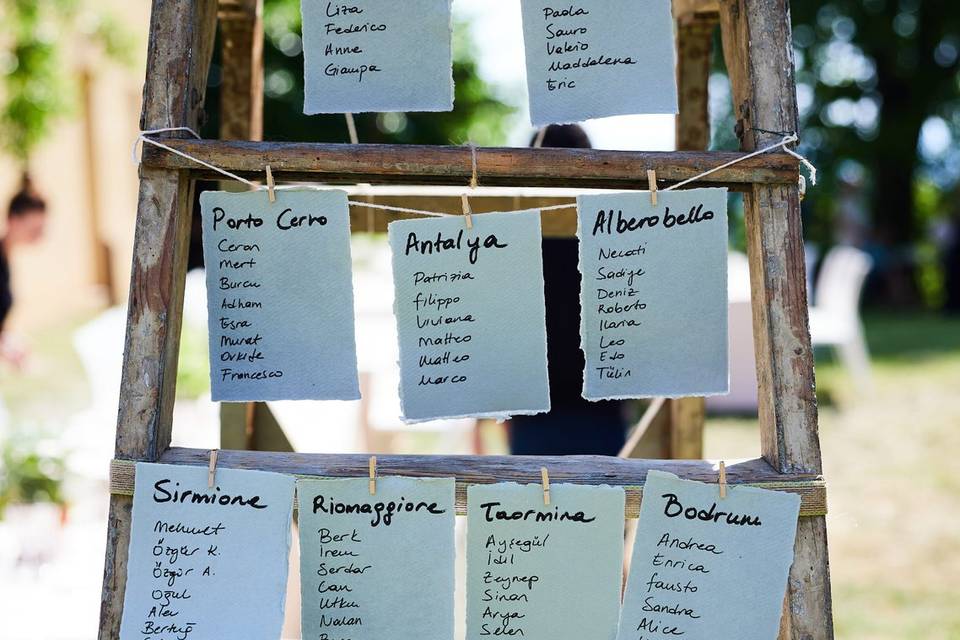 Liza
Federico
Anne
Giampa
Paola
Sauro
Valerio
Maddalena
Eric
Porto Cervo
Ceran
Mert
Burcu
Adham
Esra
Murat
Orkide
Francesco
Antalya
Patrizia
filippo
Viviana
Matteo
Matteo
Marco
Alberobello
Necati
Sadiye
Deniz
Roberto
Ilaria
Leo
Edo
Tülin
Sirmione
Mehmet
Özgür K.
Özgür A.
Oğul
Alev
Bertuğ
Riomaggiore
Berk
İrem
Serdar
Can
Utku
Nalan
Taormina
Ayşegül
İdil
Zeynep
Sinan
Arya
Selen
Bodrum
Andrea
Enrica
fausto
Sandra
Alice